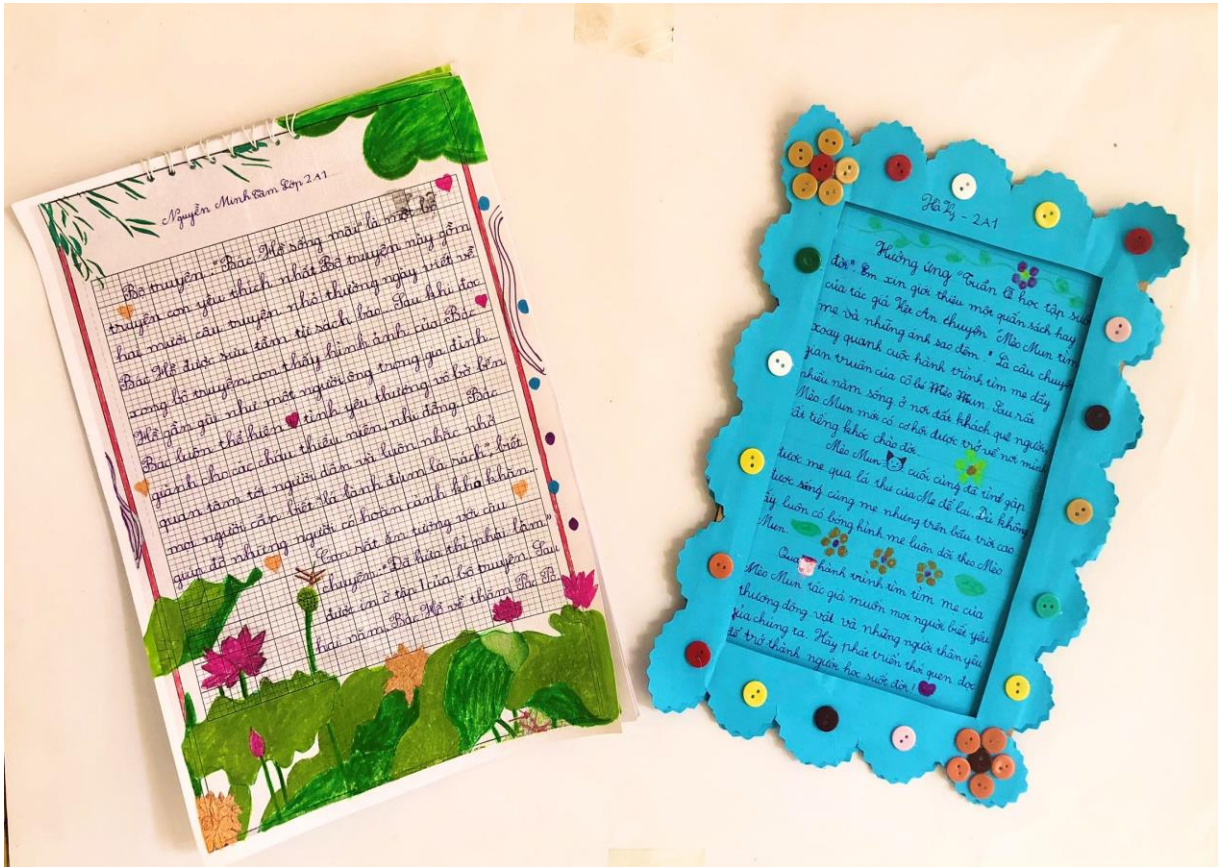 Nguyễn Minh Tâm Lớp 2A1
Bộ truyện: "Bác Hồ sống mãi" là một bộ
truyện con yêu thích nhất. Bộ truyện này gồm
hai mươi câu truyện nhỏ thường ngày viết về
Bác Hồ được sưu tầm từ sách báo. Sau khi đọc
xong bộ truyện, con thấy hình ảnh của Bác
Hồ gần gũi như một người ông trong gia đình
Bác luôn thể hiện tình yêu thương vô bờ bến
giành cho các cháu thiếu niên, nhi đồng. Bác
quan tâm tới người dân và luôn nhắc nhở
mọi người cần biết "lá lành đùm lá rách", biết
giúp đỡ những người có hoàn cảnh khó khăn.
Con rất ấn tượng với câu
chuyện: "Đã hứa thì phải làm"
được in ở tập 1 của bộ truyện. Sau
hai năm, Bác Hồ về thăm Pác Pó
Hà Vy - 2A1
Hưởng ứng "Tuần lễ học tập suố
đời". Em xin giới thiệu một quấn sách hay
của tác giả An thuyên "Mèo Mun tìm
mẹ và những ánh sao đêm." Là câu chuyệ
xoay quanh cuộc hành trình tìm mẹ đầy
gian truân của cô bé Mèo Mun. Sau rất
nhiều năm sống ở nơi đất khách quê người
Mèo Mun mới có cơ hội được trở về nơi mình
ất tiếng khóc chào đời.
Mèo Mun cuối cùng đã tìm gặp
được mẹ qua lá thư của Mẹ để lại. Dù không
được sống cùng mẹ nhưng trên bầu trời cao
ấy luôn có bóng hình mẹ luôn dõi theo Mèo
Mun.
Qua hành trình tìm tìm mẹ của
Mèo Mun tác giả muốn mọi người biết yêu
thương động vật và những người thân yêu
của chúng ta. Hãy phát triển thói quen đọc
để trở thành người học suốt đời!